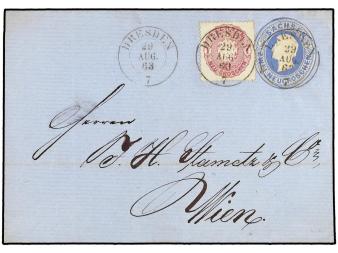 DRESDEN
29
AUG.
63
7
DRESDEN
29
AUG.
63
7
29
AUG.
63
Herren
J. H. Stametz & Co.
Wien.